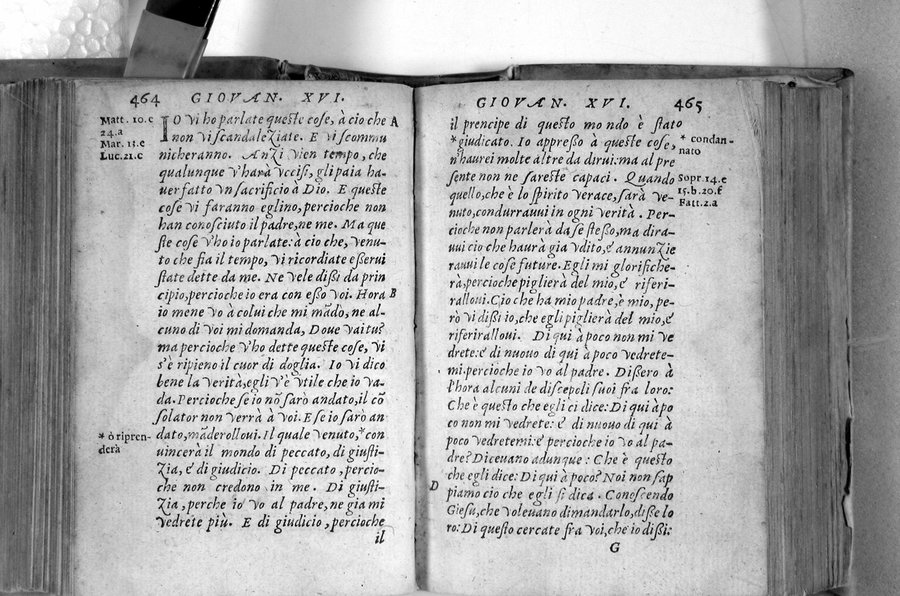 464 GIOVAN. XVI.
Matt. 10.c
24.a
Mar. 13.c
Luc. 21.c
IO vi ho parlate queste cose, à cio che A
non vi scandaleziate. E vi scommu
nicheranno. Anzi vien tempo, che
qualunque v'harà vccisi, gli paia ha-
uer fatto vn sacrificio à Dio. E queste
cose vi faranno eglino, percioche non
han conosciuto il padre, ne me. Ma que
ste cose v'ho io parlate: à cio che, venu-
to che fia il tempo, vi ricordiate esserui
state dette da me. Ne vele dissi da prin
cipio, percioche io era con esso voi. Hora B
io mene vo à colui che mi mādò, ne al-
cuno di voi mi domanda, Doue vai tu?
ma percioche v'ho dette queste cose, vi
s'è ripieno il cuor di doglia. Io vi dico
bene la verità, egli v'è vtile che io va-
da. Percioche se io nō sarò andato, il cō
solator non verrà à voi. E se io sarò an
dato, māderolloui. Il quale venuto, *con
* ò ripren-
derà
uincerà il mondo di peccato, di giusti-
zia, e' di giudicio. Di peccato, percio-
che non credono in me. Di giusti-
zia, perche io vo al padre, ne gia mi
vedrete più. E di giudicio, percioche
il
GIOVAN. XVI. 465
il prencipe di questo mo ndo è stato
*giudicato. Io appresso à queste cose,
* condan-
nato
n'haurei molte altre da dirui: ma al pre
sente non ne sareste capaci. Quando
Sopr. 14.e
15.b. 20.f
Fatt. 2.a
quello, che è lo spirito verace, sarà ve-
nuto, condurrauui in ogni verità. Per-
cioche non parlerà da se stesso, ma dira-
uui cio che haurà gia vdito, e' annunzie
rauui le cose future. Egli mi glorifiche-
rà, percioche piglierà del mio, e' riferi-
ralloui. Cio che ha mio padre, è mio, pe-
rò vi dissi io, che egli piglierà del mio, e'
riferiralloui. Di qui à poco non mi ve
drete: e' di nuouo di qui à poco vedrete-
mi. percioche io vo al padre. Dissero à
l'hora alcuni de discepoli suoi fra loro:
Che è questo che egli ci dice: Di qui à po
co non mi vedrete: e' di nuouo di qui à
poco vedretemi: e' percioche io vo al pa-
dre? Diceuano adunque: Che è questo
che egli dice: Di qui à poco? Noi non sap
D piamo cio che egli si dica. Conoscendo
Giesù, che voleuano dimandarlo, disse lo
ro: Di questo cercate fra voi, che io dissi:
G